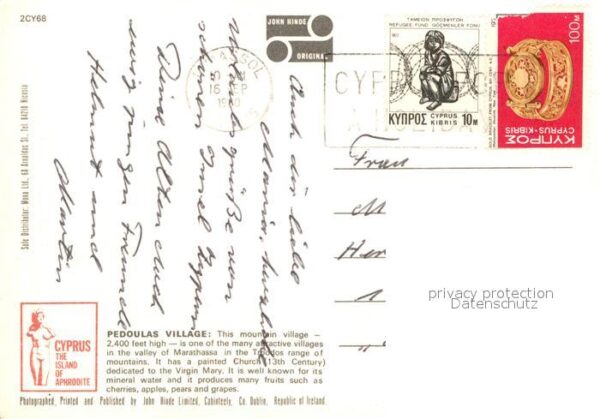 2CY68
JOHN HINDE
ORIGINAL
SOL
16 SEP
1980
CYPRUS
A HOLIDAY
ΤΑΜΕΙΟΝ ΠΡΟΣΦΥΓΩΝ
REFUGEE FUND GÖÇMENLER FONU
ΚΥΠΡΟΣ CYPRUS KIBRIS 10M
100M
ΚΥΠΡΟΣ
CYPRUS-KIBRIS
Sole Distributor: Mona Ltd, 64 Arnaldas St., Tel. 64210 Nicosia
Auch dir liebe
Maria, herzliche
Urlaubsgrüße von
schönen Insel Zypern
Deine Alten und
ewig jungen Freunde
Helmut und
Martin
Frau
M
Her
privacy protection
Datenschutz
CYPRUS
THE
ISLAND
OF
APHRODITE
PEDOULAS VILLAGE: This mountain village –
2,400 feet high – is one of the many attractive villages
in the valley of Marathassa in the Troodos range of
mountains. It has a painted Church (13th Century)
dedicated to the Virgin Mary. It is well known for its
mineral water and it produces many fruits such as
cherries, apples, pears and grapes.
Photographed, Printed and Published by John Hinde Limited, Cabinteely, Co. Dublin, Republic of Ireland.